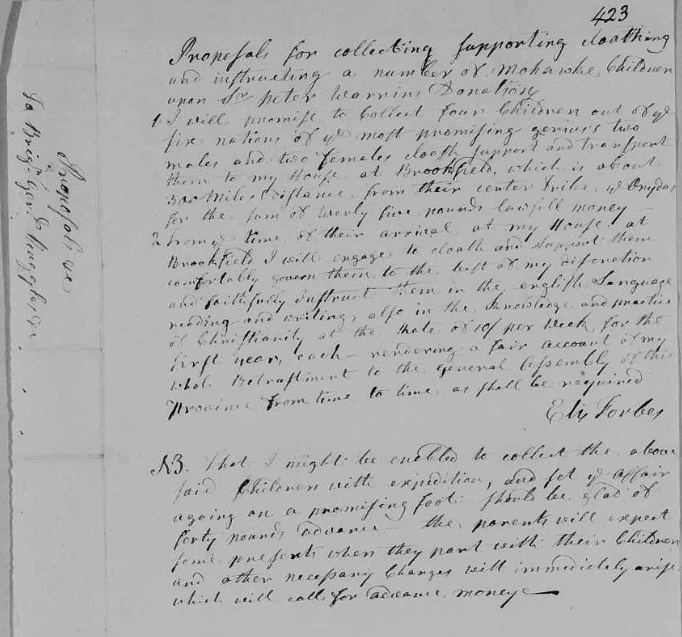 423
Proposals for collecting supporting cloathing
and instructing a number of Mohawke Children
upon Sr Peter Warrins Donation
1 I will promise to Collect four Children out of ye
six nations of ye most promising genius's two
males and two females cloath support and transport
them to my House at Brookfield, which is about
300 Miles Distance, from their center Tribe, ye Onydas
for the sum of twenty five pounds lawfull money
2 from ye time of their arrival at my House at
Brookfield I will engage to cloath and Support them
comfortably govern them to the best of my discretion
and faithfully Instruct them in the english Language
reading and writing, also in the Knowledge and practice
of Christianity at the Rate of 10/ per week for the
first year, each - rendering a fair account of my
whole to the general Assembly of this
Province from time to time as shall be required
Eli Forbes
NB. That I might be enabled to collect the above
said Children with expedition, and set ye affair
agoing on a promising foot should be glad of
forty pounds advance the parents will expect
some presents when they part with their Children
and other necessary Charges will immediately arise
which will call for advance money
Proposals
To Brigr Genl